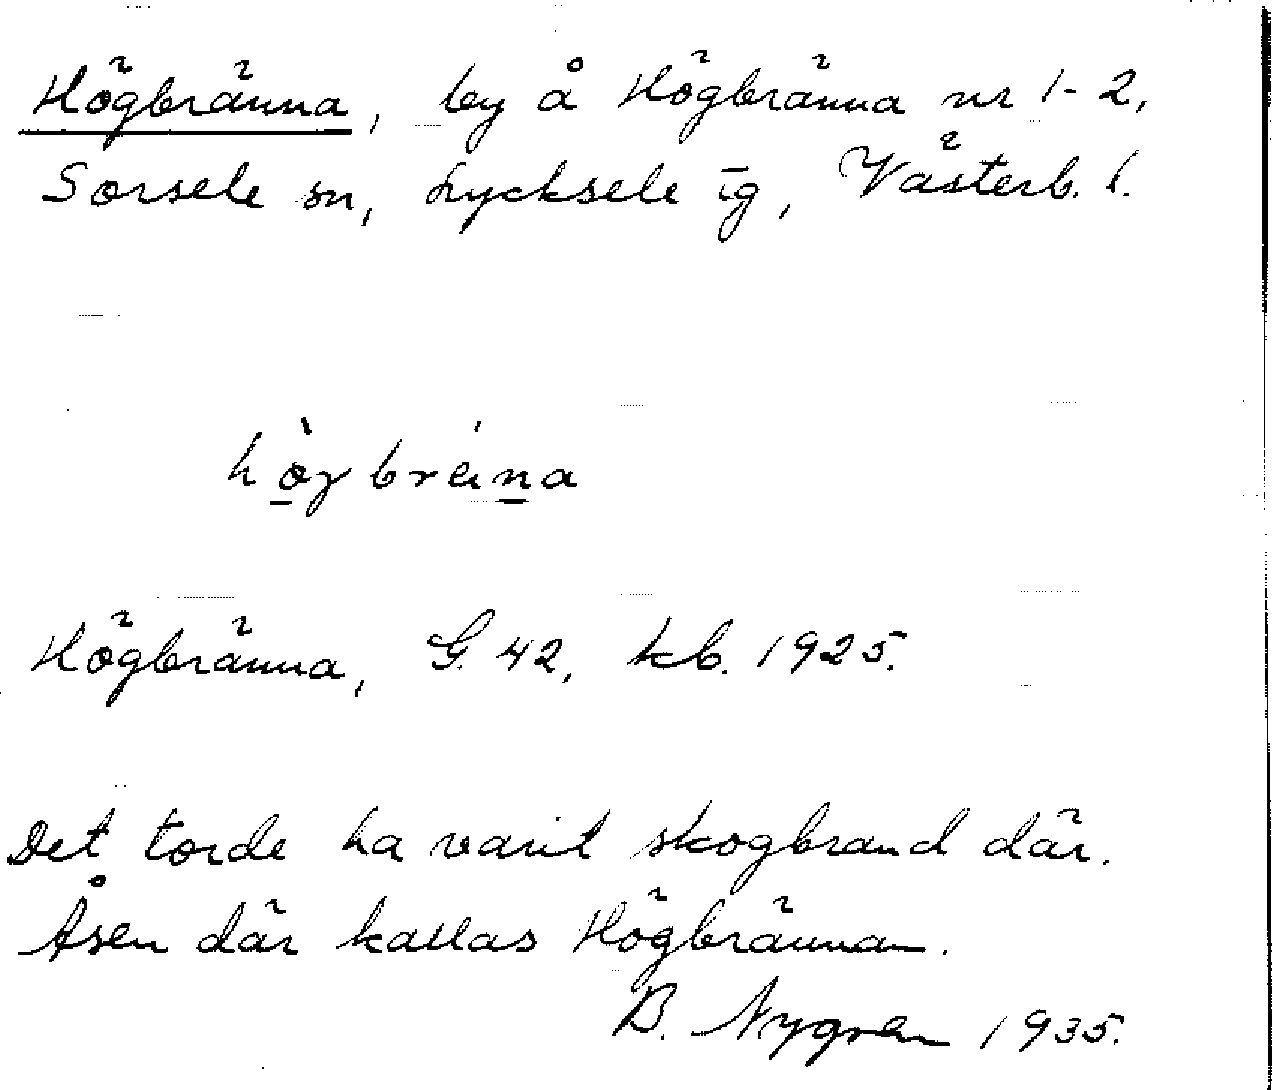 Högbränna, by å Högbränna nr 1-2,
Sorsele sn, Lycksele tg, Västerb. l.
hö̀gbrä́na
Högbränna, G. 42, kb. 1925.
Det torde ha varit skogbrand där.
Åsen där kallas Högbrännan.
B. Nygren 1935.